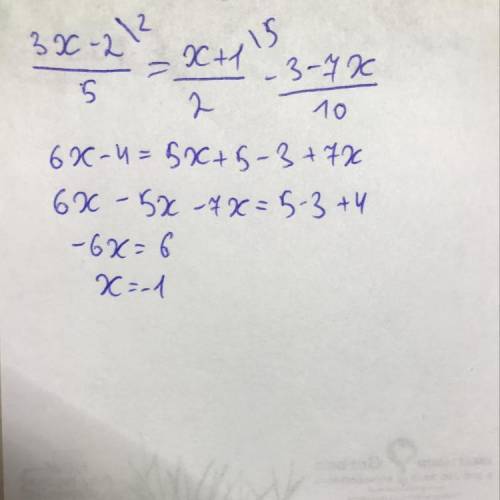 (3x-2\2)/5 = (x+1\5)/2 - (3-7x)/10
6x-4=5x+5-3+7x
6x-5x-7x=5-3+4
-6x=6
x=-1